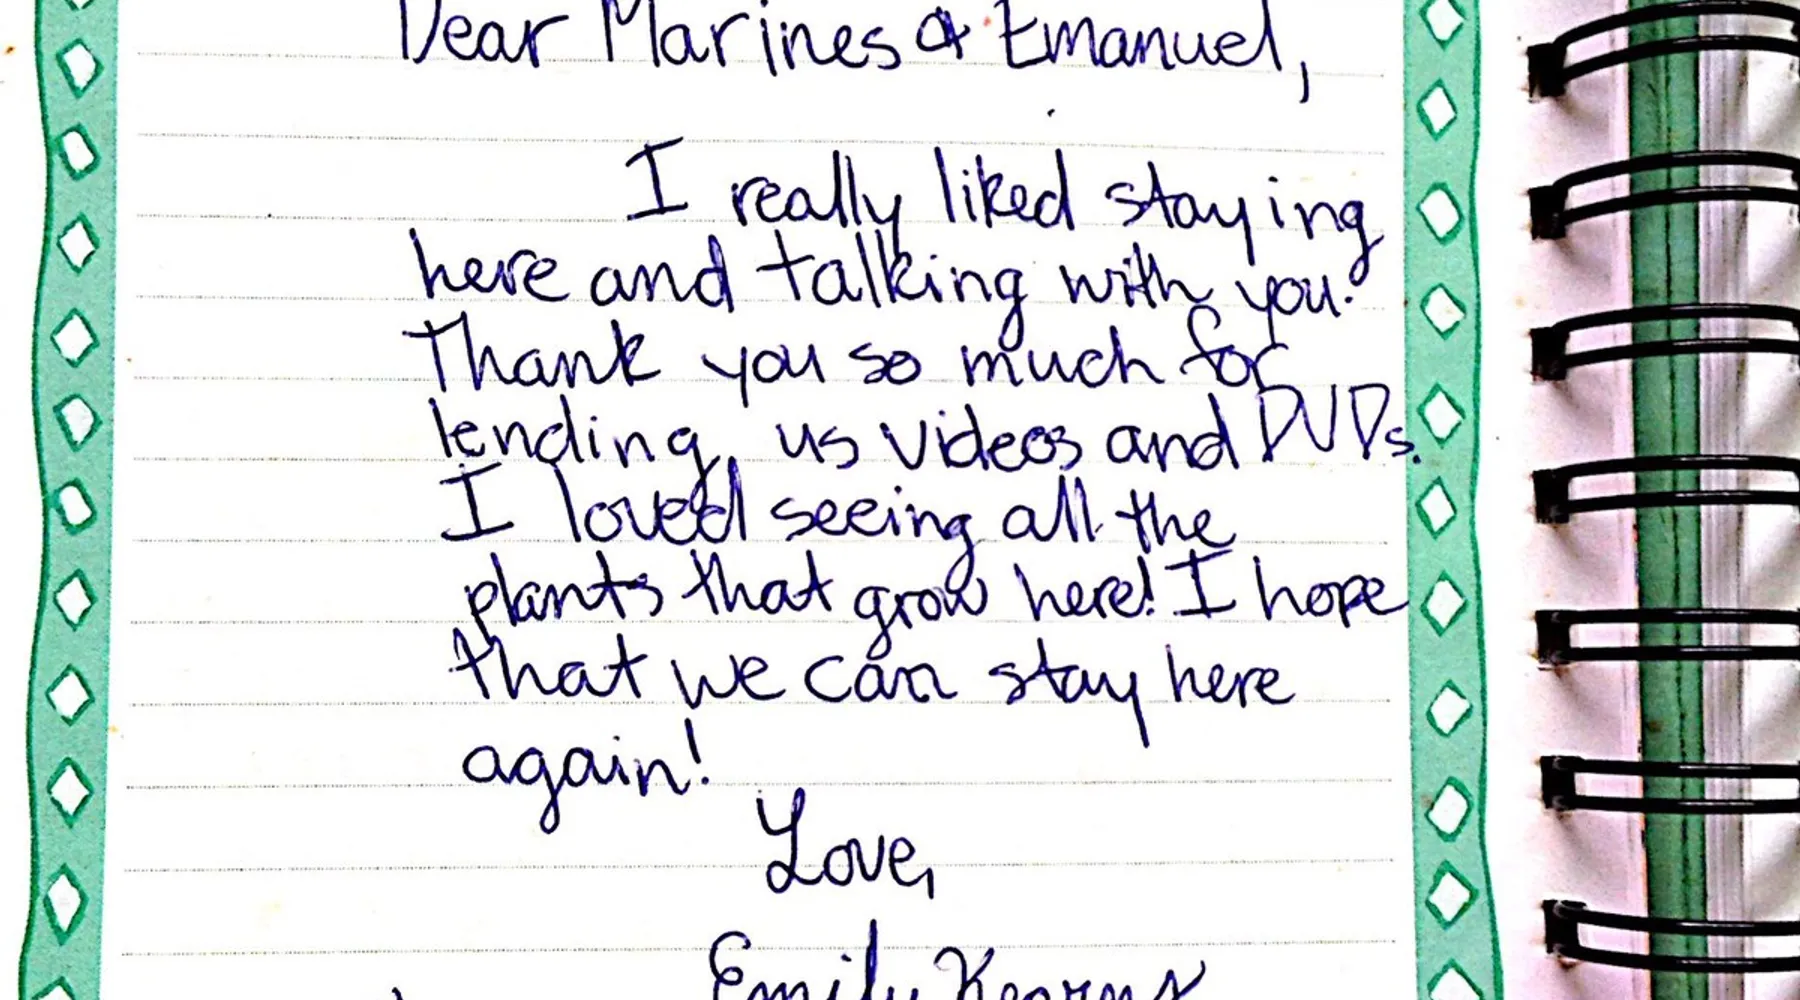 Dear Marines & Emanuel,
I really liked staying
here and talking with you.
Thank you so much for
lending us videos and DVDs.
I loved seeing all the
plants that grow here! I hope
that we can stay here
again!
Love,
Emily Kearns